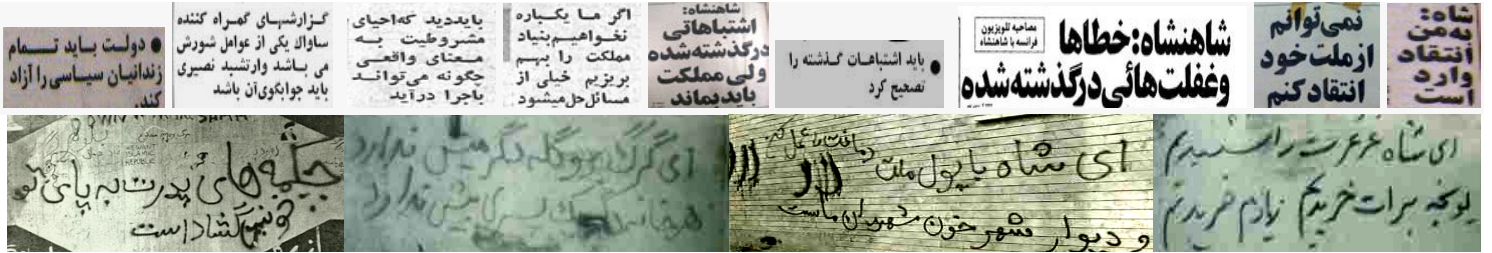 شاه:
به من
انتقاد
وارد
است
نمی‌توانم
از ملت خود
انتقاد کنم
مصاحبه تلویزیون
فرانسه با شاهنشاه
شاهنشاه: خطاها
وغفلت‌هائی درگذشته شده
باید اشتباهات گذشته را
تصحیح کرد
شاهنشاه:
اشتباهاتی
درگذشته شده
ولی مملکت
باید بماند
اگر ما یکباره
نخواهیم بنیاد
مملکت را بهم
بریزیم خیلی از
مسائل حل میشود
باید دید که احیای
مشروطیت به
معنای واقعی
چگونه می‌تواند
باجرا درآید
گزارشهای گمراه کننده
ساواک یکی از عوامل شورش
می باشد وارتشبد نصیری
باید جوابگوی آن باشد
دولت باید تمام
زندانیان سیاسی را آزاد
کند
ای شاه عرعرت را شنیدیم
یونجه برات خریدیم
ای شاه با پول ملت
و دیوار شهر خون شهیدان ماست
ای گرگ دگر میش ندارد
چکمه های پدرت به پای تو
گشاد است